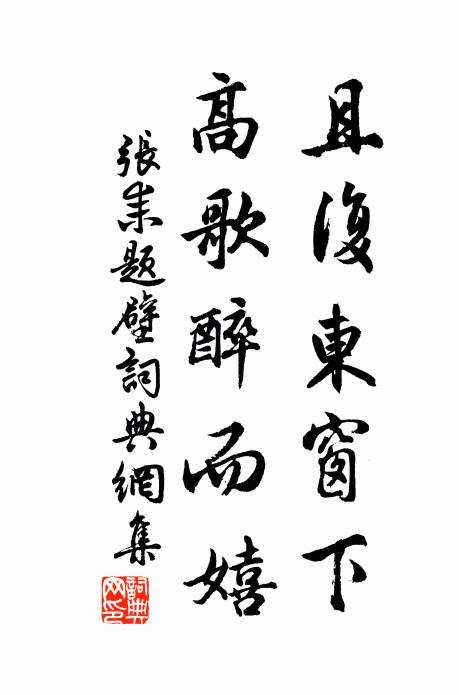 且復東窗下
高歌醉而嬉
張耒題壁詞典網集
詞典
网印